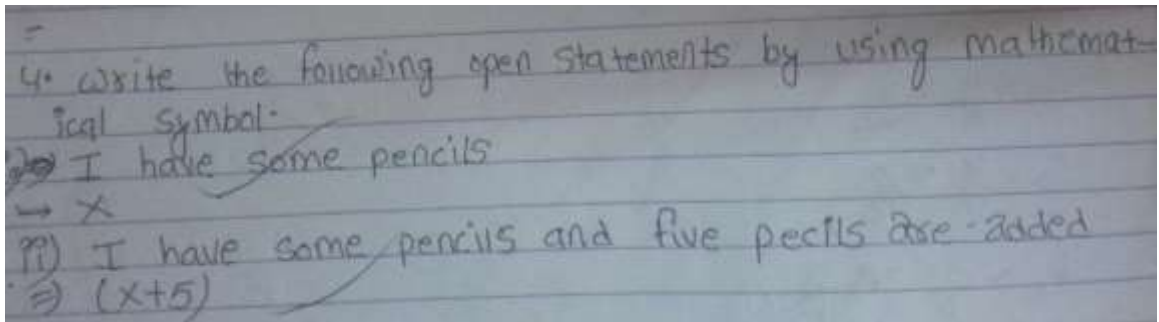 =
4. Write the following open statements by using mathemat-
ical symbol.
I have some pencils
→ x
ii) I have some pencils and five pecils are added
⇒ (x+5)